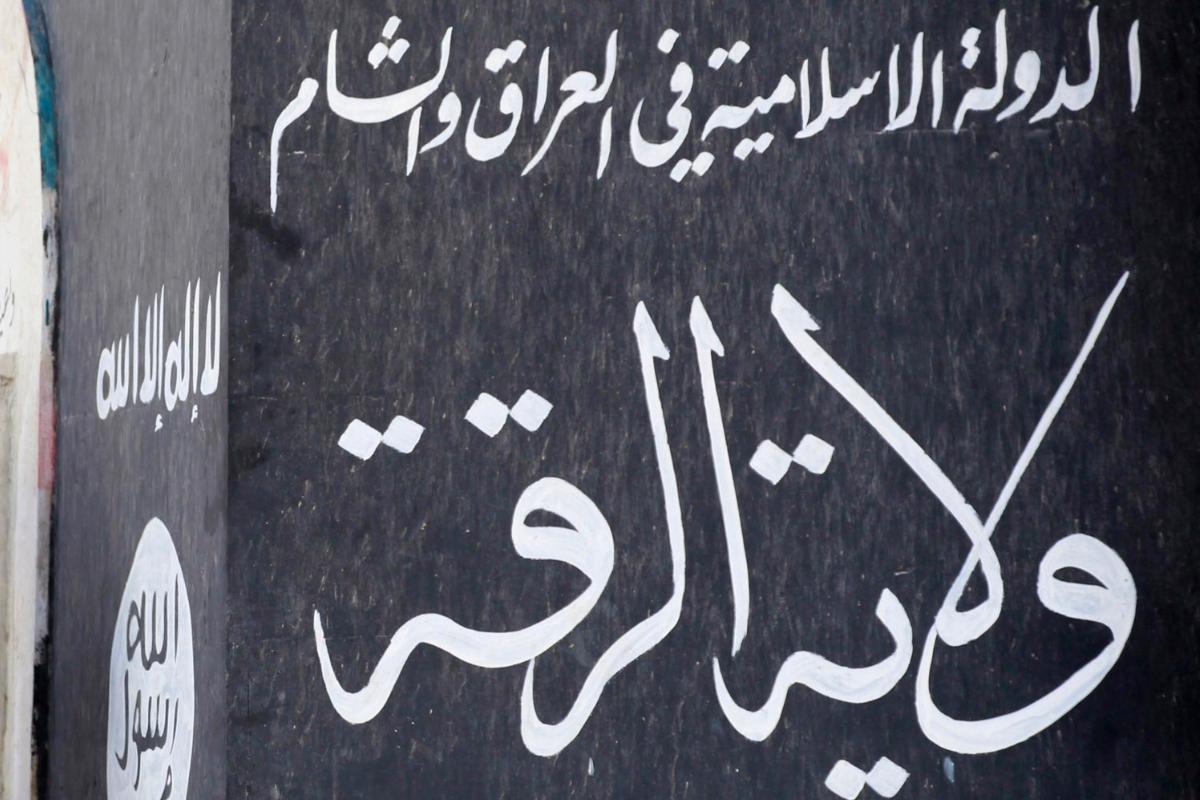 الدولة الاسلامية في العراق والشام
ولاية الرقة
لا إله إلا الله
الله
رسول